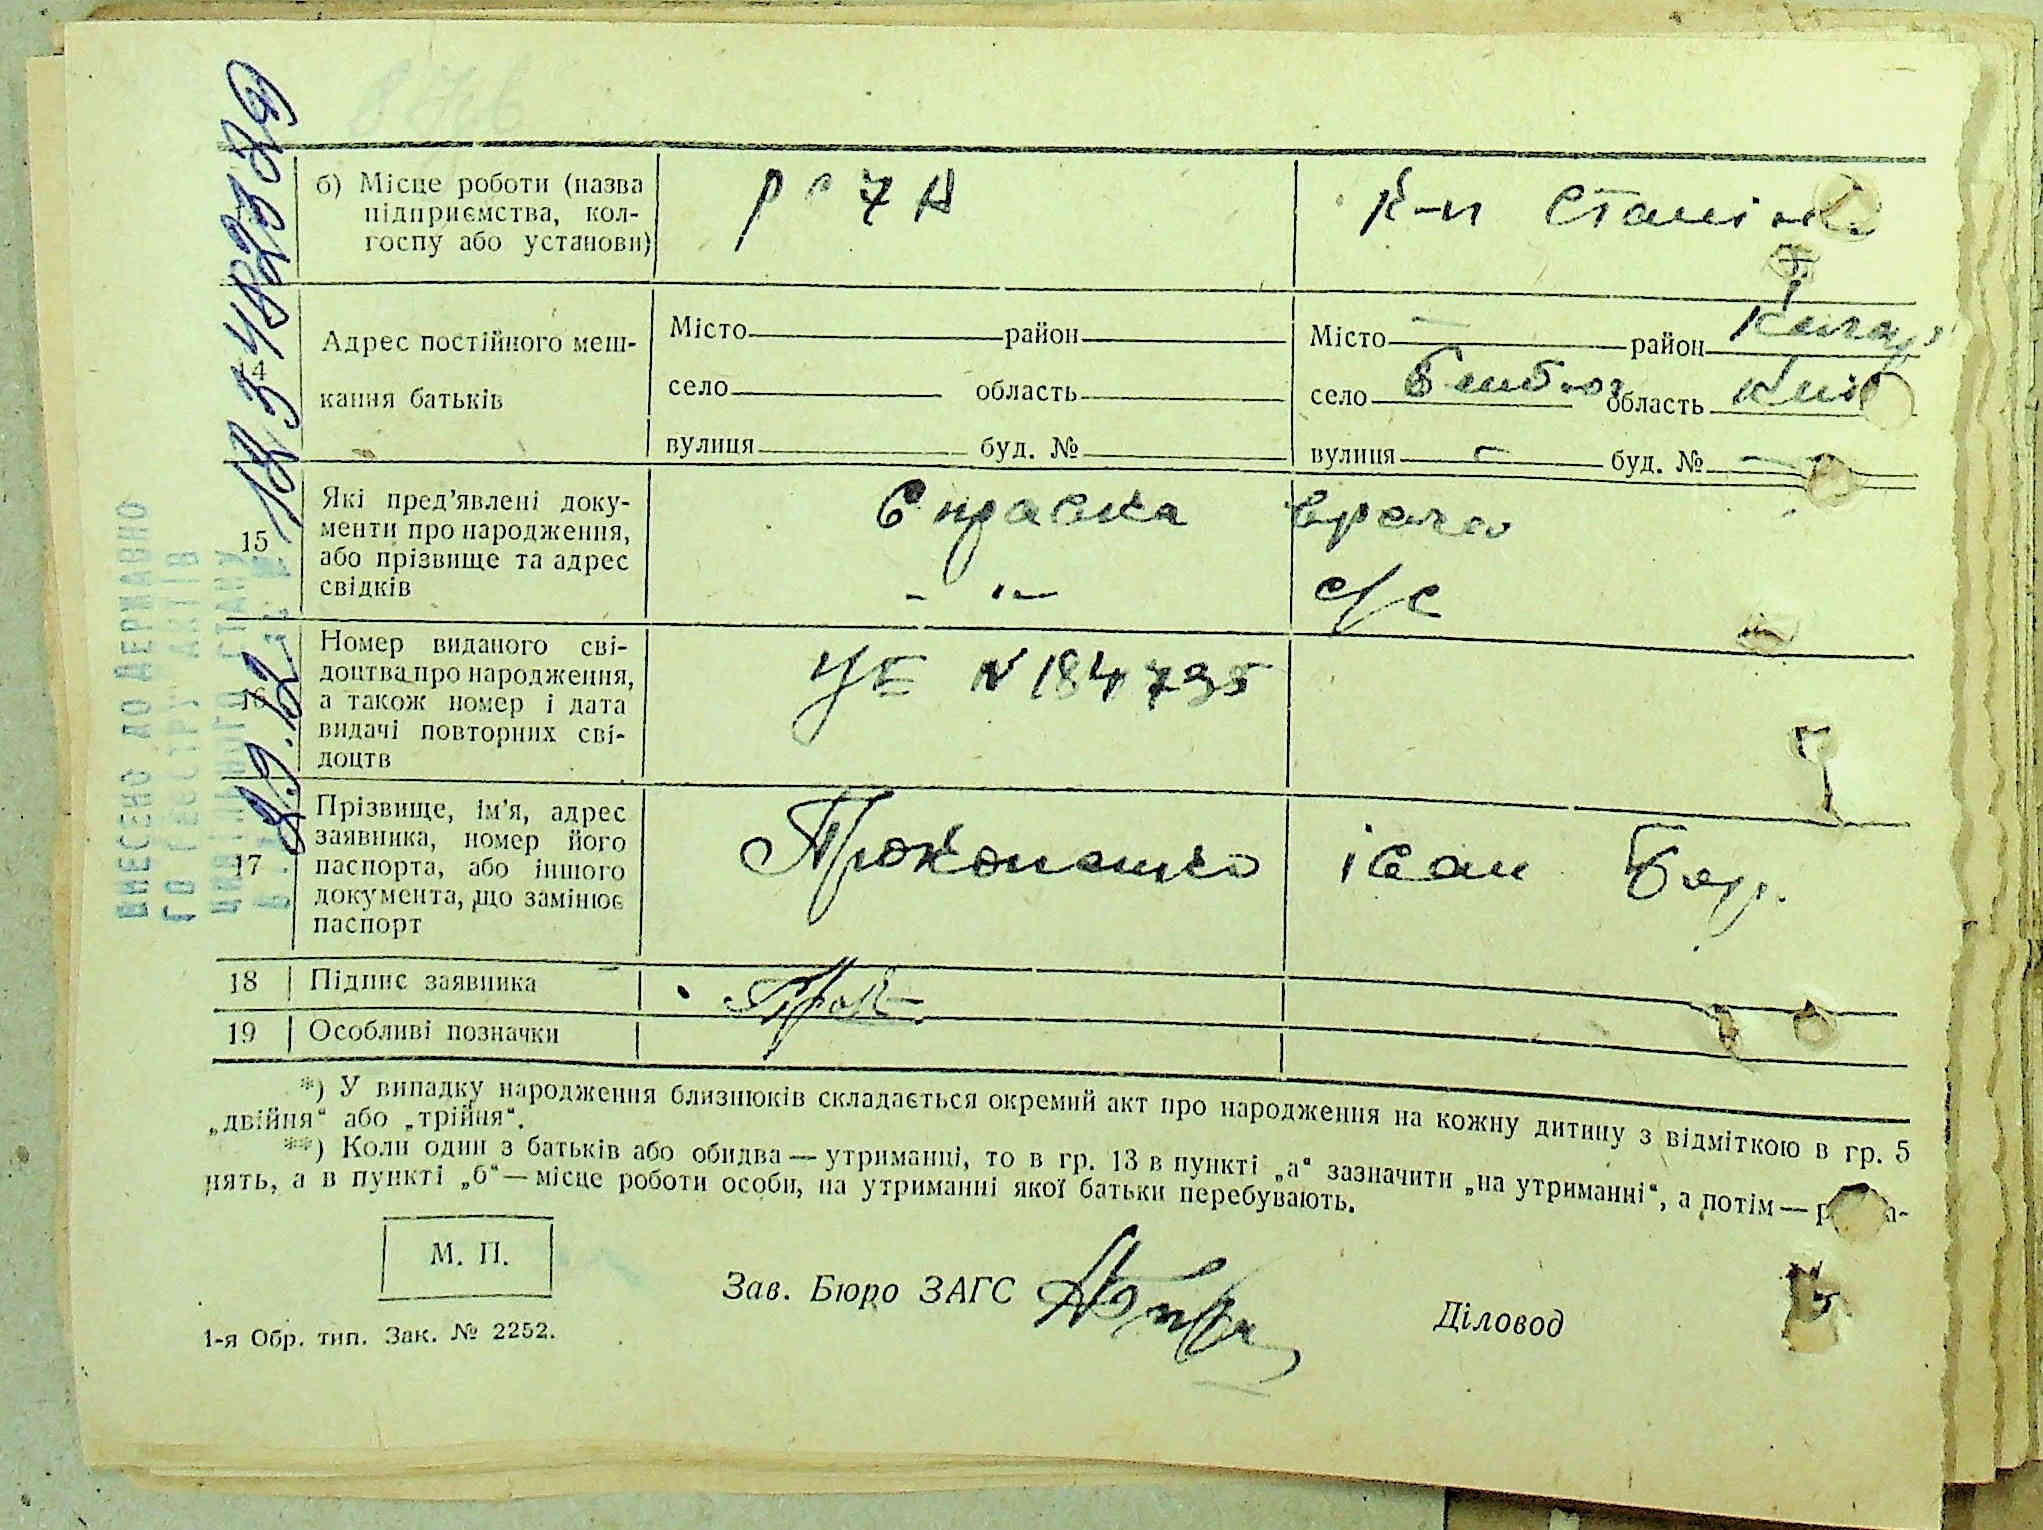 б) Місце роботи (назва
підприємства, кол-
госпу або установи)
К-п Сталіна
Адрес постійного меш-
14
кання батьків
Місто район
село область
вулиця буд. №
Місто — район
село область Київ
вулиця — буд. № —
15
Які пред'явлені доку-
менти про народження,
або прізвище та адрес
свідків
Справка врача
- "- с/с
16
Номер виданого сві-
доцтва про народження,
а також номер і дата
видачі повторних сві-
доцтв
УЕ N 184735
17
Прізвище, ім'я, адрес
заявника, номер його
паспорта, або іншого
документа, що замінює
паспорт
Прокопенко іван
18 Підпис заявника
Прок
19 Особливі позначки
*) У випадку народження близнюків складається окремий акт про народження на кожну дитину з відміткою в гр. 5
„двійня“ або „трійня“.
**) Коли один з батьків або обидва — утриманці, то в гр. 13 в пункті „а“ зазначити „на утриманні“, а потім —
нять, а в пункті „б“ — місце роботи особи, на утриманні якої батьки перебувають.
М. П.
Зав. Бюро ЗАГС
Діловод
1-я Обр. тип. Зак. № 2252.
ВНЕСЕНО ДО ДЕРЖАВНО
ГО РЕЄСТРУ АКТІВ
ЦИВІЛЬНОГО СТАНУ